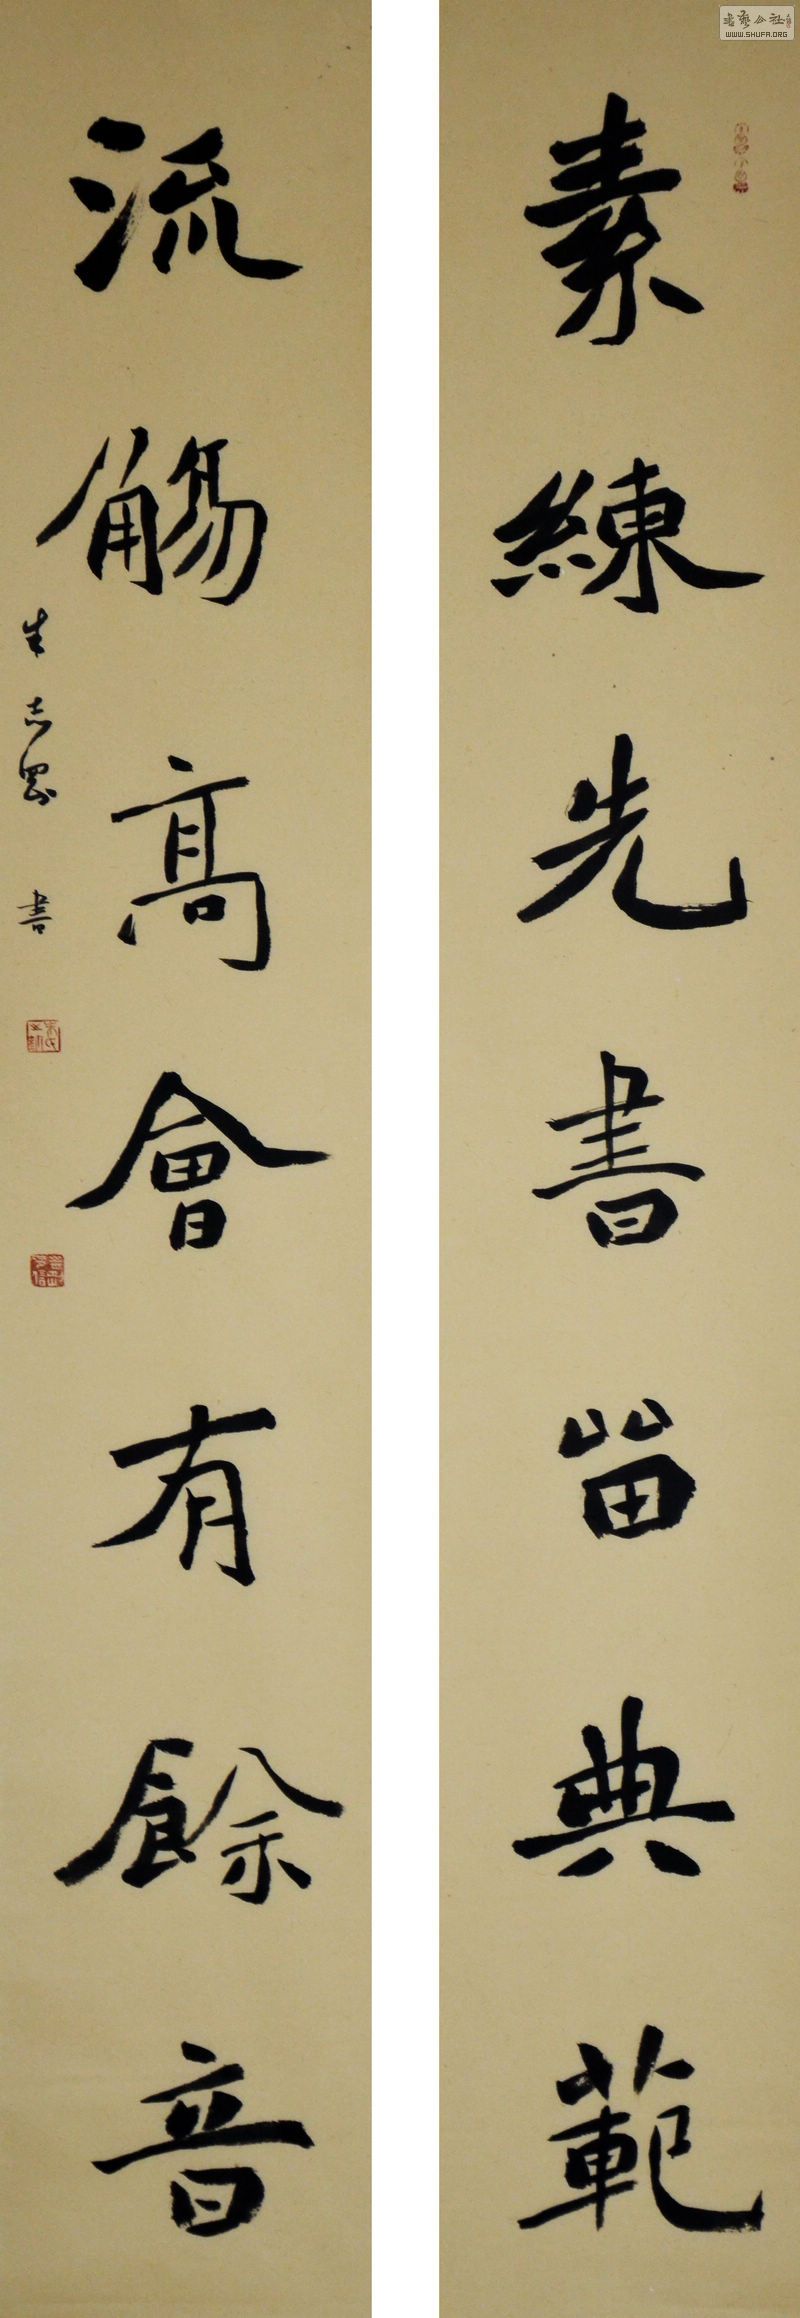 書藝公社
WWW.SHUFA.ORG
素練先書留典範
流觴高會有餘音
朱志 書